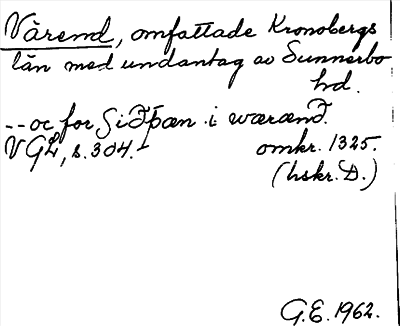 Värend, omfattade Kronobergs
län med undantag av Sunnerbo
hd.
-- oc for siðþæn i wærænd.
VGL, s. 304. omkr. 1325.
(hskr. D.)
G.E. 1962.